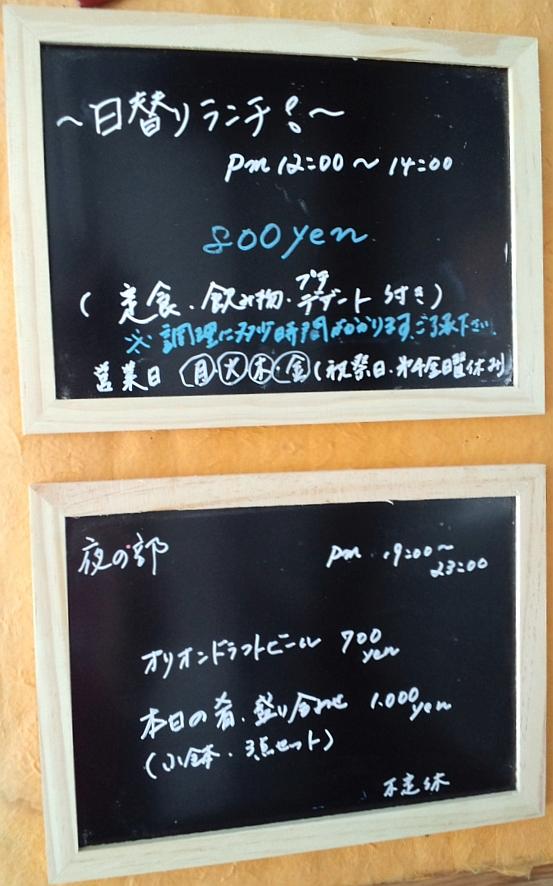 ～日替りランチ！～
pm 12:00 ～ 14:00
800yen
(定食・飲み物・プチデザート付き)
※調理に多少時間かかります。ご了承下さい
営業日 月・火・木・金(祝祭日・第4金曜休み)
夜の部
pm 19:00～
23:00
オリオンドラフトビール 700
yen
本日の肴、盛り合わせ 1,000
yen
(小鉢・3点セット)
不定休